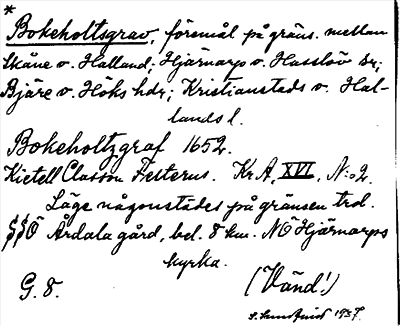 *
Bokeholtsgrav, föremål på gräns. mellan
Skåne o. Halland; Hjärnarp o. Hasslöv sr;
Bjäre o. Höks hdr; Kristianstads o. Hal-
lands l.
Bokeholtzgraf 1652.
Kietell Classon Felterus. Kr. A, XVI, N:o 2.
Läge någonstädes på gränsen trol.
SSÖ Årdala gård, bel. 8 km. NÖ Hjärnarps
kyrka.
G. 8. (Vänd!)
1937.